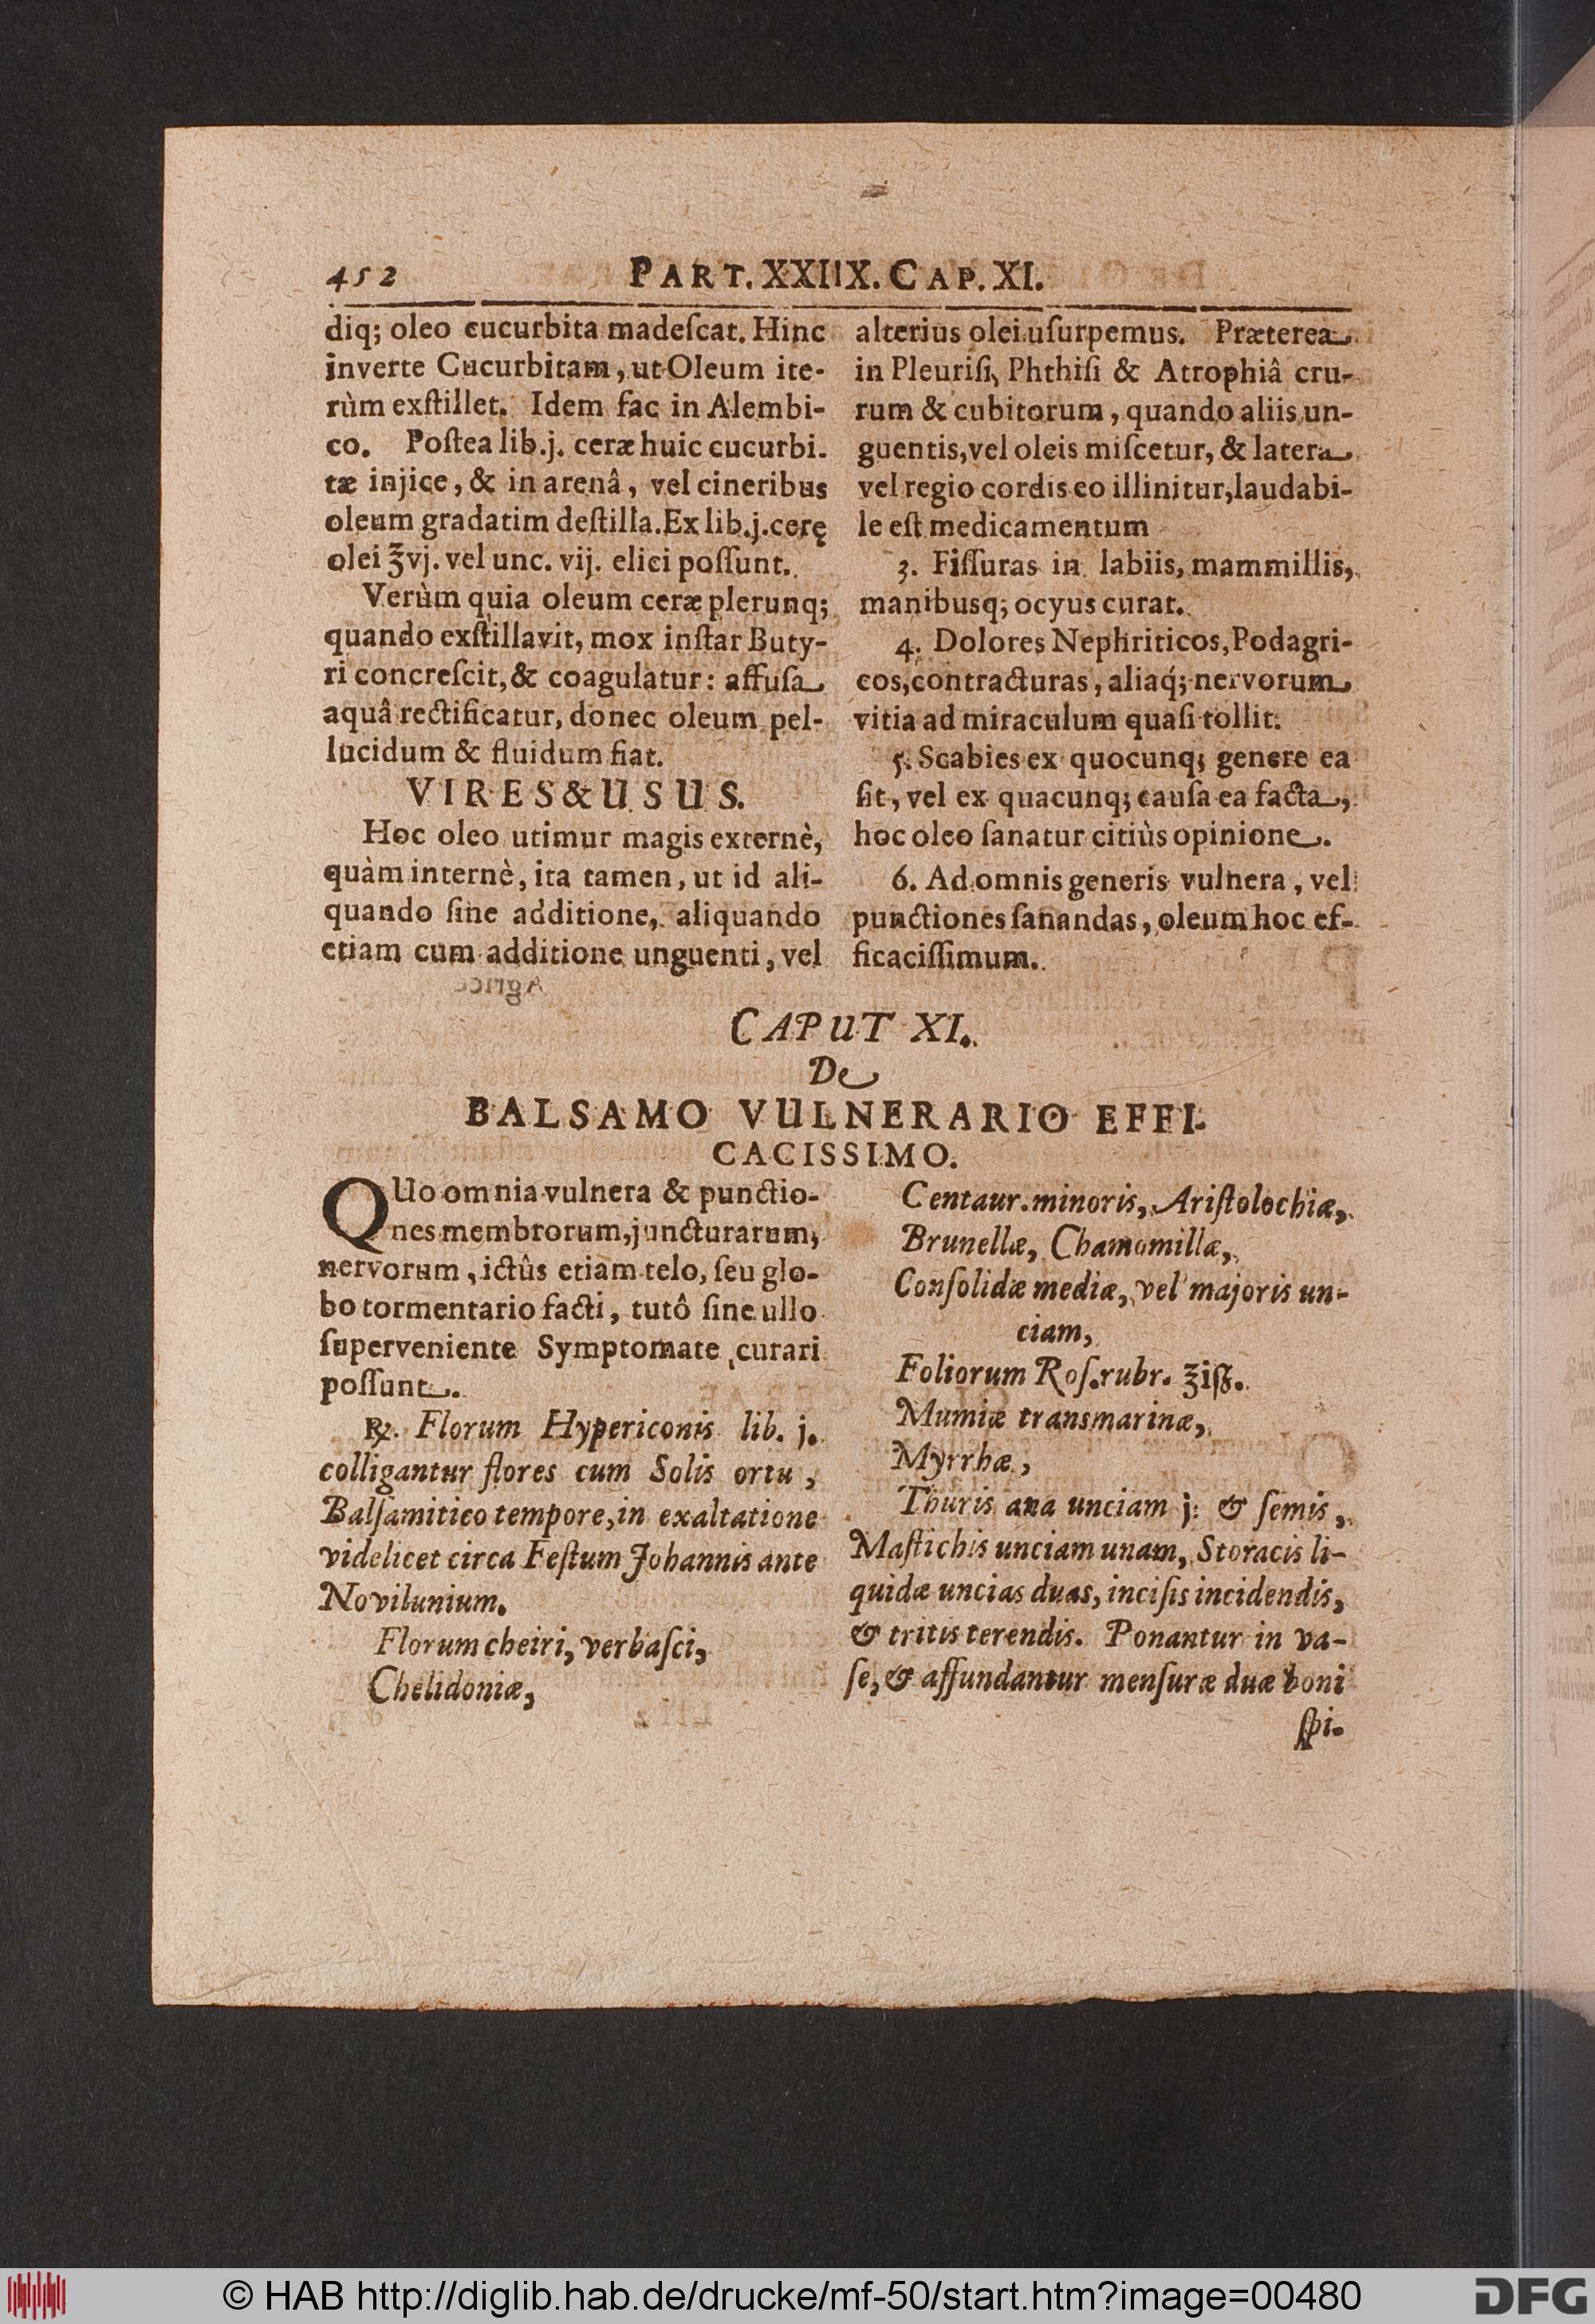 452 PART. XXIIX. CAP. XI.
diq; oleo cucurbita madeſcat. Hinc
inverte Cucurbitam, ut Oleum ite-
rùm exſtillet. Idem fac in Alembi-
co. Poſtea lib. j. ceræ huic cucurbi-
tæ injice, & in arenâ, vel cineribus
oleum gradatim deſtilla. Ex lib. j. cerę
olei ℥vj. vel unc. vij. elici poſſunt.
Verùm quia oleum ceræ plerunq;
quando exſtillavit, mox inſtar Buty-
ri concreſcit, & coagulatur: affuſa
aquâ rectificatur, donec oleum pel-
lucidum & fluidum fiat.
VIRES & USUS.
Hoc oleo utimur magis externè,
quàm internè, ita tamen, ut id ali-
quando ſine additione, aliquando
etiam cum additione unguenti, vel
alterius olei uſurpemus. Præterea
in Pleuriſi, Phthiſi & Atrophiâ cru-
rum & cubitorum, quando aliis un-
guentis, vel oleis miſcetur, & latera
vel regio cordis eo illinitur, laudabi-
le eſt medicamentum
3. Fiſſuras in labiis, mammillis,
manibusq; ocyus curat.
4. Dolores Nephriticos, Podagri-
cos, contracturas, aliaq́; nervorum
vitia ad miraculum quaſi tollit.
5. Scabies ex quocunq; genere ea
ſit, vel ex quacunq; cauſa ea facta,
hoc oleo ſanatur citiùs opinione.
6. Ad omnis generis vulnera, vel
punctiones ſanandas, oleum hoc ef-
ficaciſſimum.
CAPUT XI.
De
BALSAMO VULNERARIO EFFI-
CACISSIMO.
QUo omnia vulnera & punctio-
nes membrorum, juncturarum,
nervorum, ictûs etiam telo, ſeu glo-
bo tormentario facti, tutô ſine ullo
ſuperveniente Symptomate curari
poſſunt.
℞. Florum Hypericonis lib. j.
colligantur flores cum Solis ortu,
Balſamitico tempore, in exaltatione
videlicet circa Feſtum Johannis ante
Novilunium.
Florum cheiri, verbaſci,
Chelidoniæ,
Centaur. minoris, Ariſtolochiæ,
Brunellæ, Chamomillæ,
Conſolidæ mediæ, vel majoris un-
ciam,
Foliorum Roſ. rubr. ʒiß.
Mumiæ transmarinæ,
Myrrhæ,
Thuris ana unciam j. & ſemis,
Maſtichis unciam unam, Storacis li-
quidæ uncias duas, inciſis incidendis,
& tritis terendis. Ponantur in va-
ſe, & affundantur menſuræ duæ boni
ſpi-
© HAB http://diglib.hab.de/drucke/mf-50/start.htm?image=00480
DFG